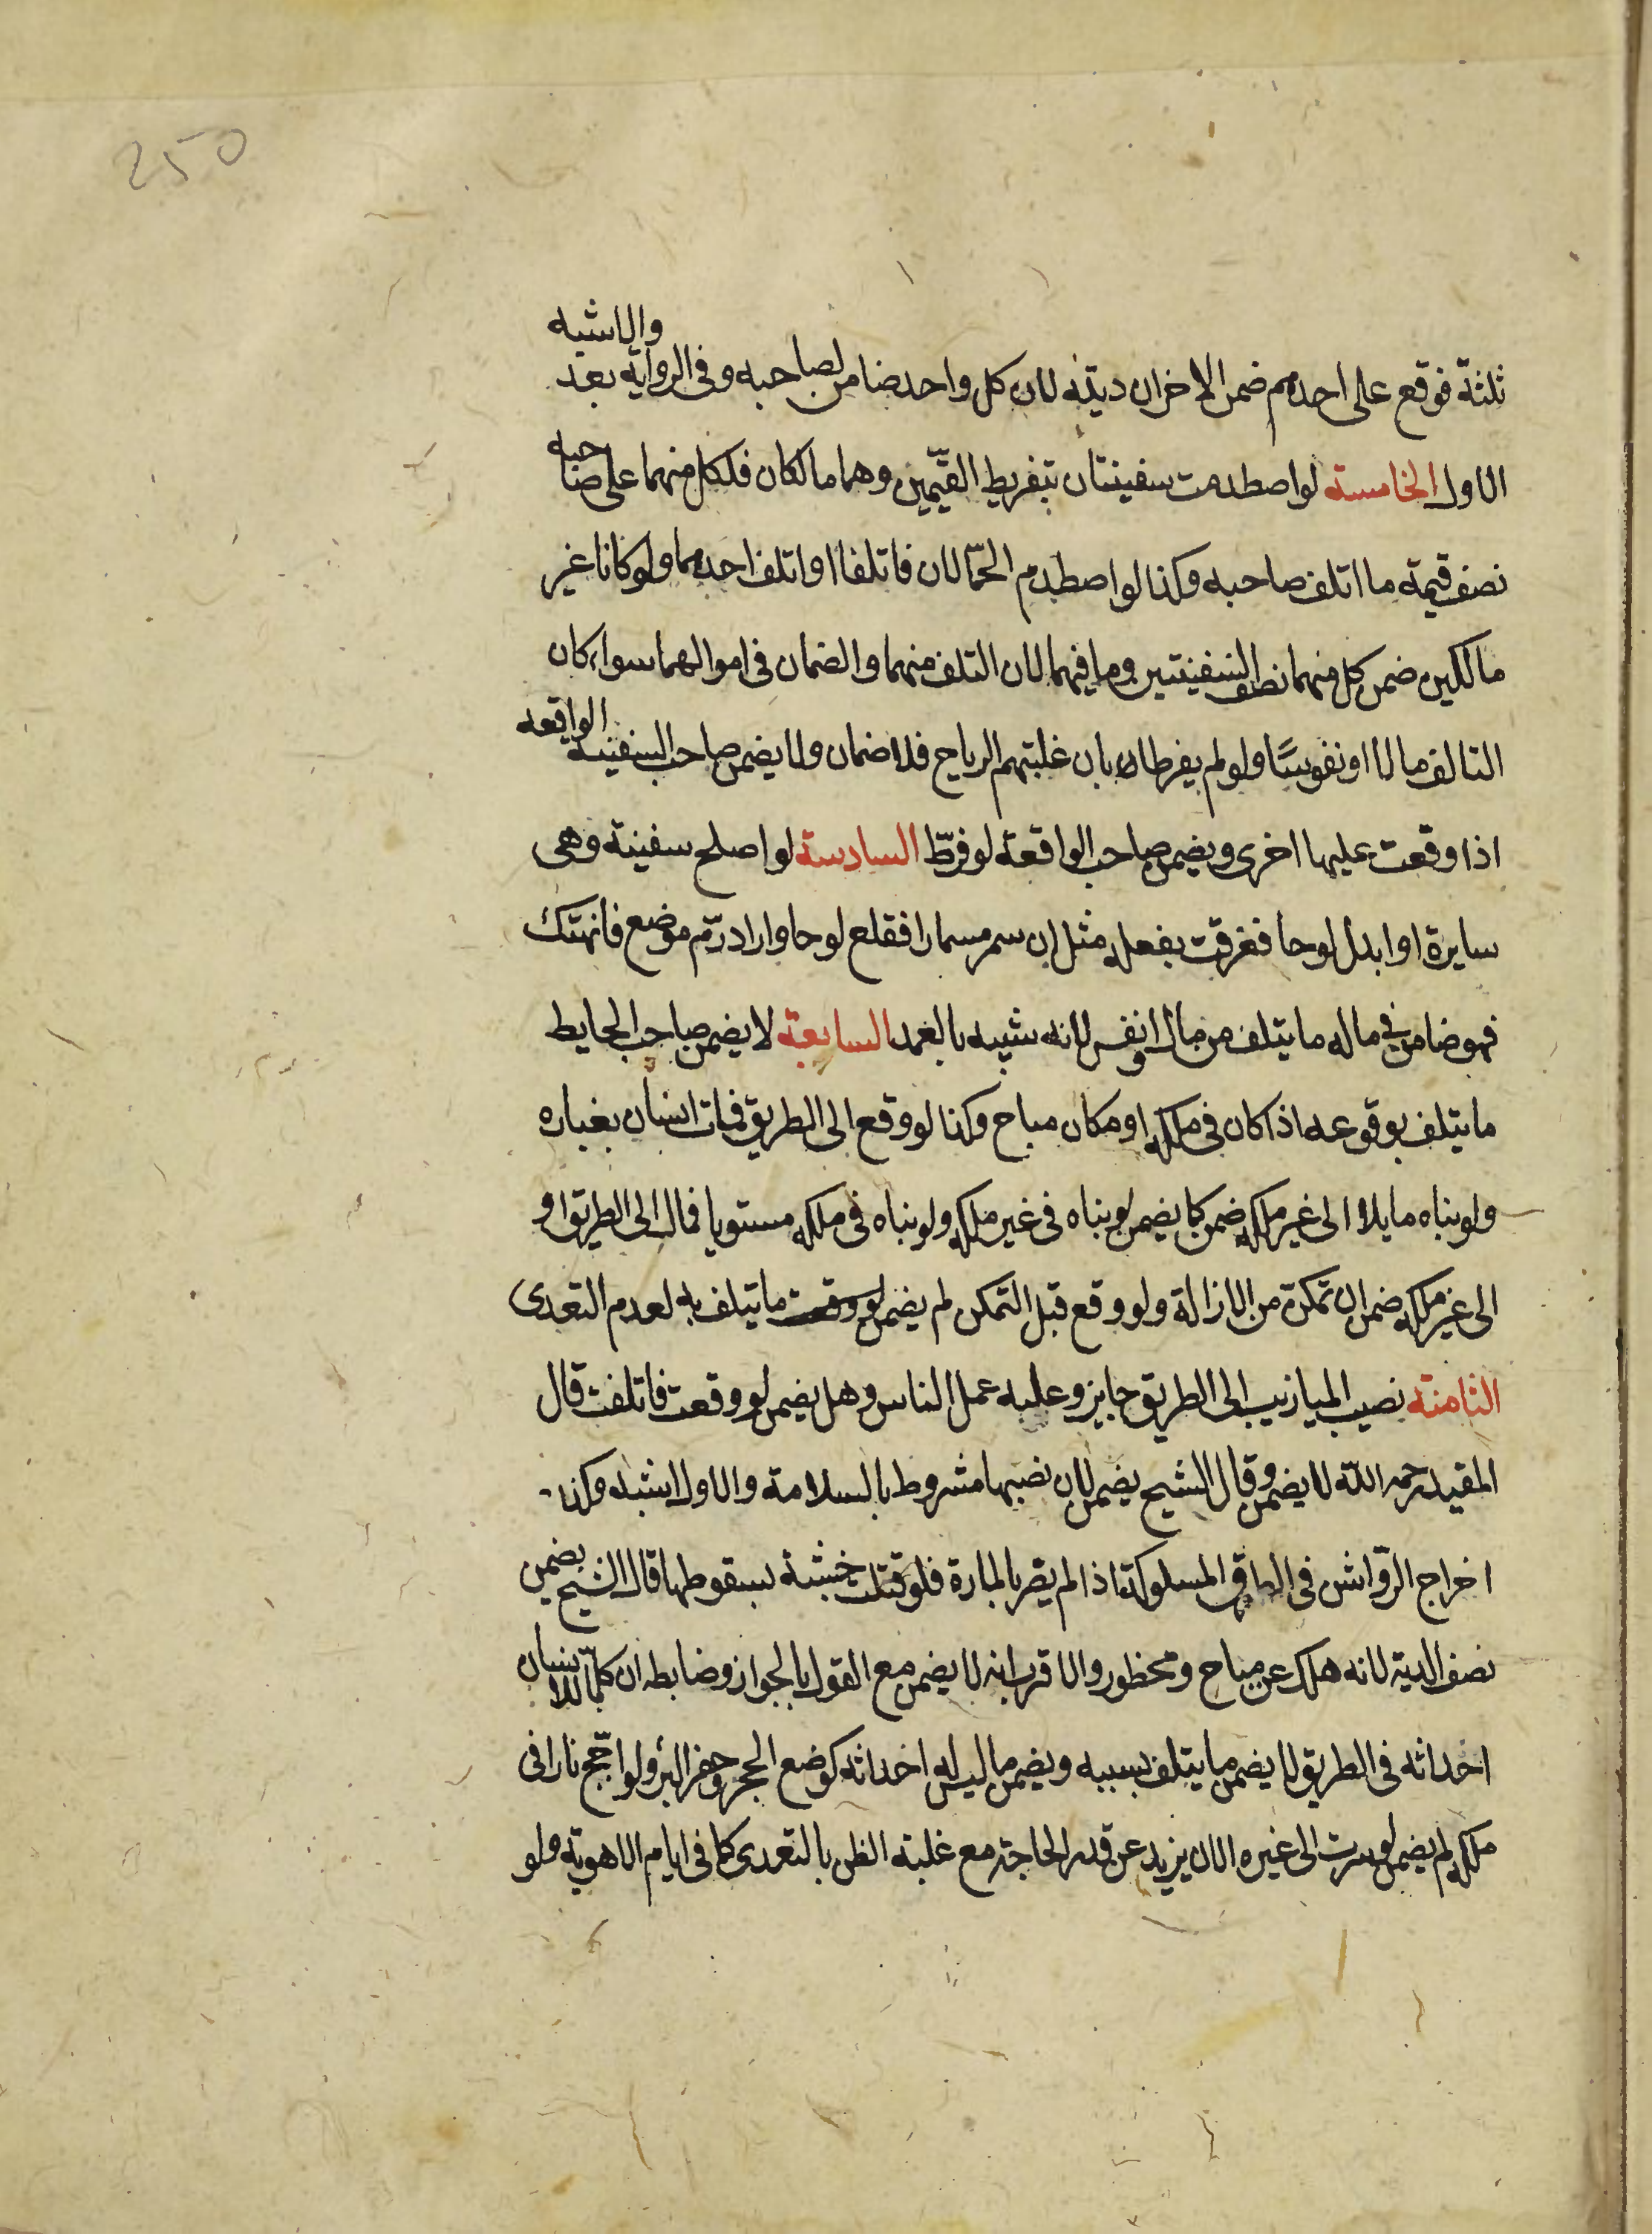 250
ثلثة فوقع على احدهم ضمن الاخران ديته لان كل واحد ضامن لصاحبه وفى الرواية بعد والاشبه
الاول الخامسة لو اصطدمت سفينتان بتفريط القيّمين وهما مالكان فلكل منهما على صاحبه
نصف قيمة ما اتلف صاحبه وكذا لو اصطدم الحمّالان فاتلفا او اتلف احدهما ولو كانا غير
مالكين ضمن كل منهما نصف السفينتين وما فيهما لان التلف منهما والضمان فى اموالهما سواء كان
التالف مالا او نفوسًا ولو لم يفرطا بان غلبتهم الرياح فلا ضمان ولا يضمن صاحب السفينة الواقعه
اذا وقعت عليها اخرى ويضمن صاحب الواقعة لو فرّط السادسة لو اصلح سفينة وهى
سايرة او ابدل لوحا فغرقت بفعله مثل ان سمر مسمارا فقلع لوحا واراد رمّ موضع فانهتك
فهو ضامن فى ماله ما يتلف من مال او نفس لانه شبيه بالعمد السابعة لا يضمن صاحب الحايط
ما يتلف بوقوعه اذا كان فى ملكه او مكان مباح وكذا لو وقع الى الطريق فمات انسان بغباره
ولو بناه مايلا الى غير ملكه ضمن كما يضمن لو بناه فى غير ملكه ولو بناه فى ملكه مستويا فمال الى الطريق او
الى غير ملكه ضمن ان تمكن من الازالة ولو وقع قبل التمكن لم يضمن لو وقعت ما يتلف به لعدم التعدى
الثامنة نصيب الميازيب الى الطريق جايز وعليه عمل الناس وهل يضمن لو وقعت فاتلفت قال
المفيد رحمه اللّه لا يضمن وقال الشيخ يضمن لان نصبها مشروط بالسلامة والاول اشبه وكذا
اخراج الرّواشن فى المسلوكة اذا لم يضر بالمارة فلو قتلت خشبة بسقوطها قال الشيخ يضمن
نصف الدية لانه هلك عن مباح ومحظور والاقرب انه لا يضمن مع القول بالجواز وضابطه ان كلّما للانسان
احداثه فى الطريق لا يضمن ما يتلف بسببه ويضمن ما ليس له احداثه كوضع الحجر وحفر البئر ولو اجّج نارا فى
ملكه لم يضمن لو سرت الى غيره الا ان يزيد عن قدر الحاجة مع غلبة الظن بالتعدى كما فى ايام الاهوية ولو